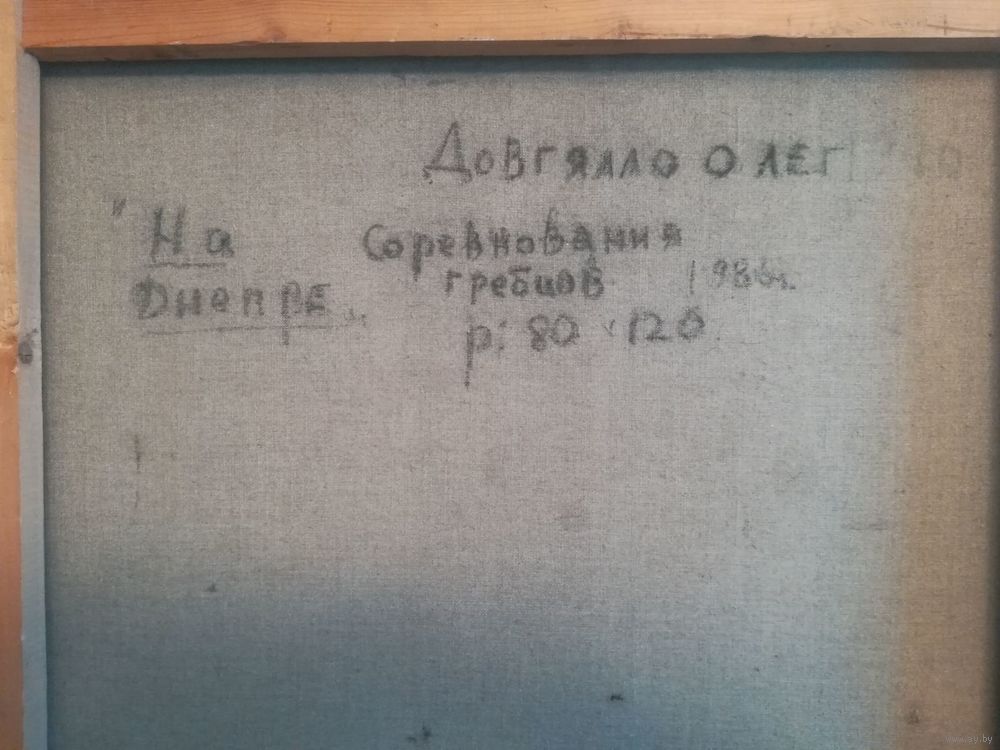 Довгялло Олег
"На Соревнования
Днепре" гребцов 1986г.
р: 80 х 120
www.ay.by